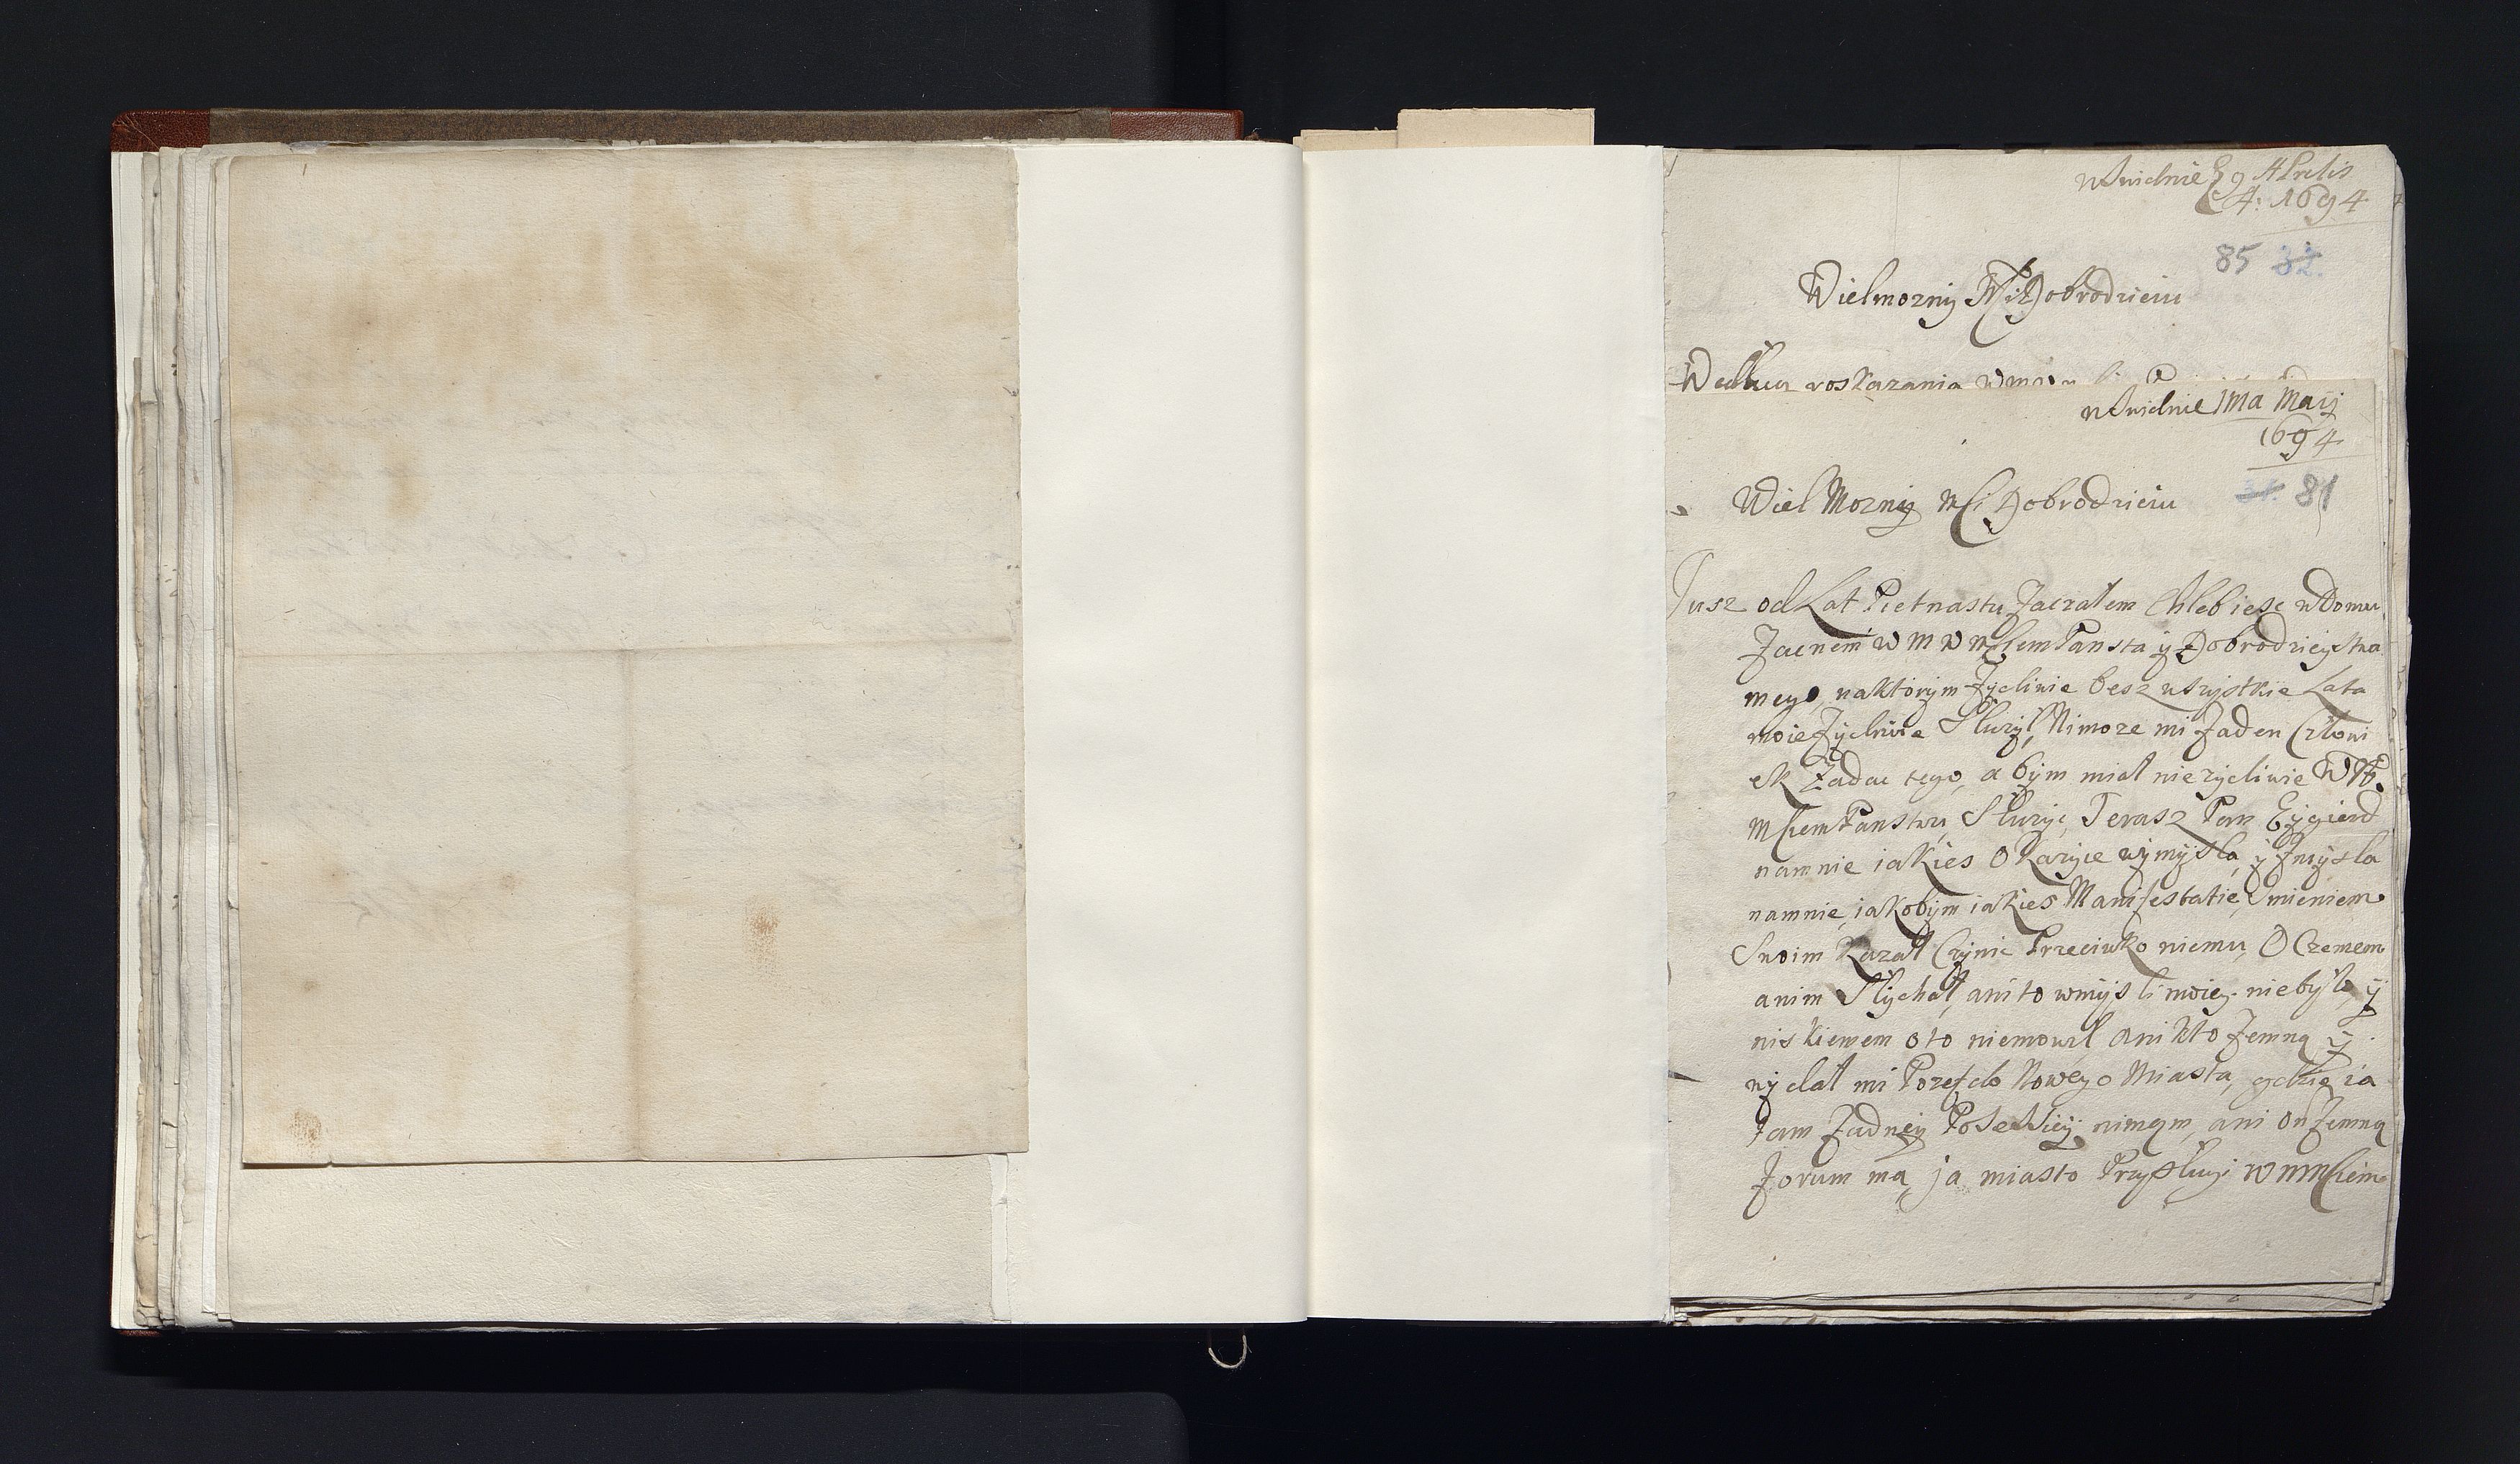 w Swidnie 9 Aprilis
A: 1694
85 32.
Wielmozny Mci Dobrodzieiu
Wedlug roskazania
w Swidnie 1ma Maij
1694
81
Wiel Mozny Mci Dobrodzieiu
Jusz od Lat Pietnastu Zaczałem Chleb iesc w Domu
Zacnem W M W Mciem Panstwa ÿ Dobrodzieystwa
mego, naktorÿm Zÿcliwie besz wszÿstkie Lata
moie Zÿcliwie Słuzÿł, Nimoze mi Zaden Człowi
ek Zadac tego, a bÿm miał niezÿcliwie W M.
Mciem Panstwu Słuzÿc, Terasz Pan Eÿgierd
namnie iakies Okazÿie wÿmÿsla, ÿ Zmÿsla
namnie, iakobÿm iakies Manifestatie, Imieniem
Swoim Kazał Czÿnic Przeciwko niemu, O Czemem
anim Słÿchał, ani to wmÿsli moieÿ niebÿło, ÿ
niskiemem oto niemowił ani kto Zemną ÿ
wÿdał mi Pozef do Nowego Miasta, gdzie ia
tam Zadneÿ Posessieÿ nimąm, ani on Zemną
Forum ma, ja miasto Przÿsługi W M Mciem